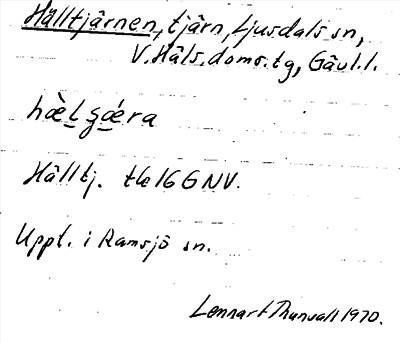 Hålltjärnen, tjärn, Ljusdals sn,
V. Häls. doms. tg, Gävl. l.
hæ̀lʂǽra
Hålltj. tle 16 G NV.
Uppt. i Ramsjö sn.
Lennart Thunvall 1970.